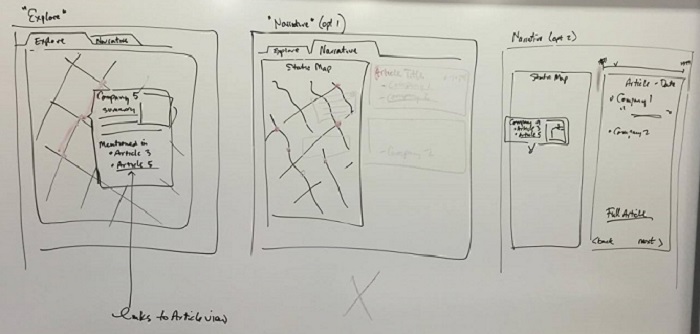 "Explore"
Explore Narrative
Company 5
summary
Mentioned in
• Article 3
• Article 5
links to Article view
"Narrative" (opt 1)
Explore Narrative
Static Map
Article Title
- Company 2
X
Narrative (opt 2)
Static Map
Company a
• Article 3
• Article 5
Article - Date
• Company 1
• Company 2
Full Article
< back next >